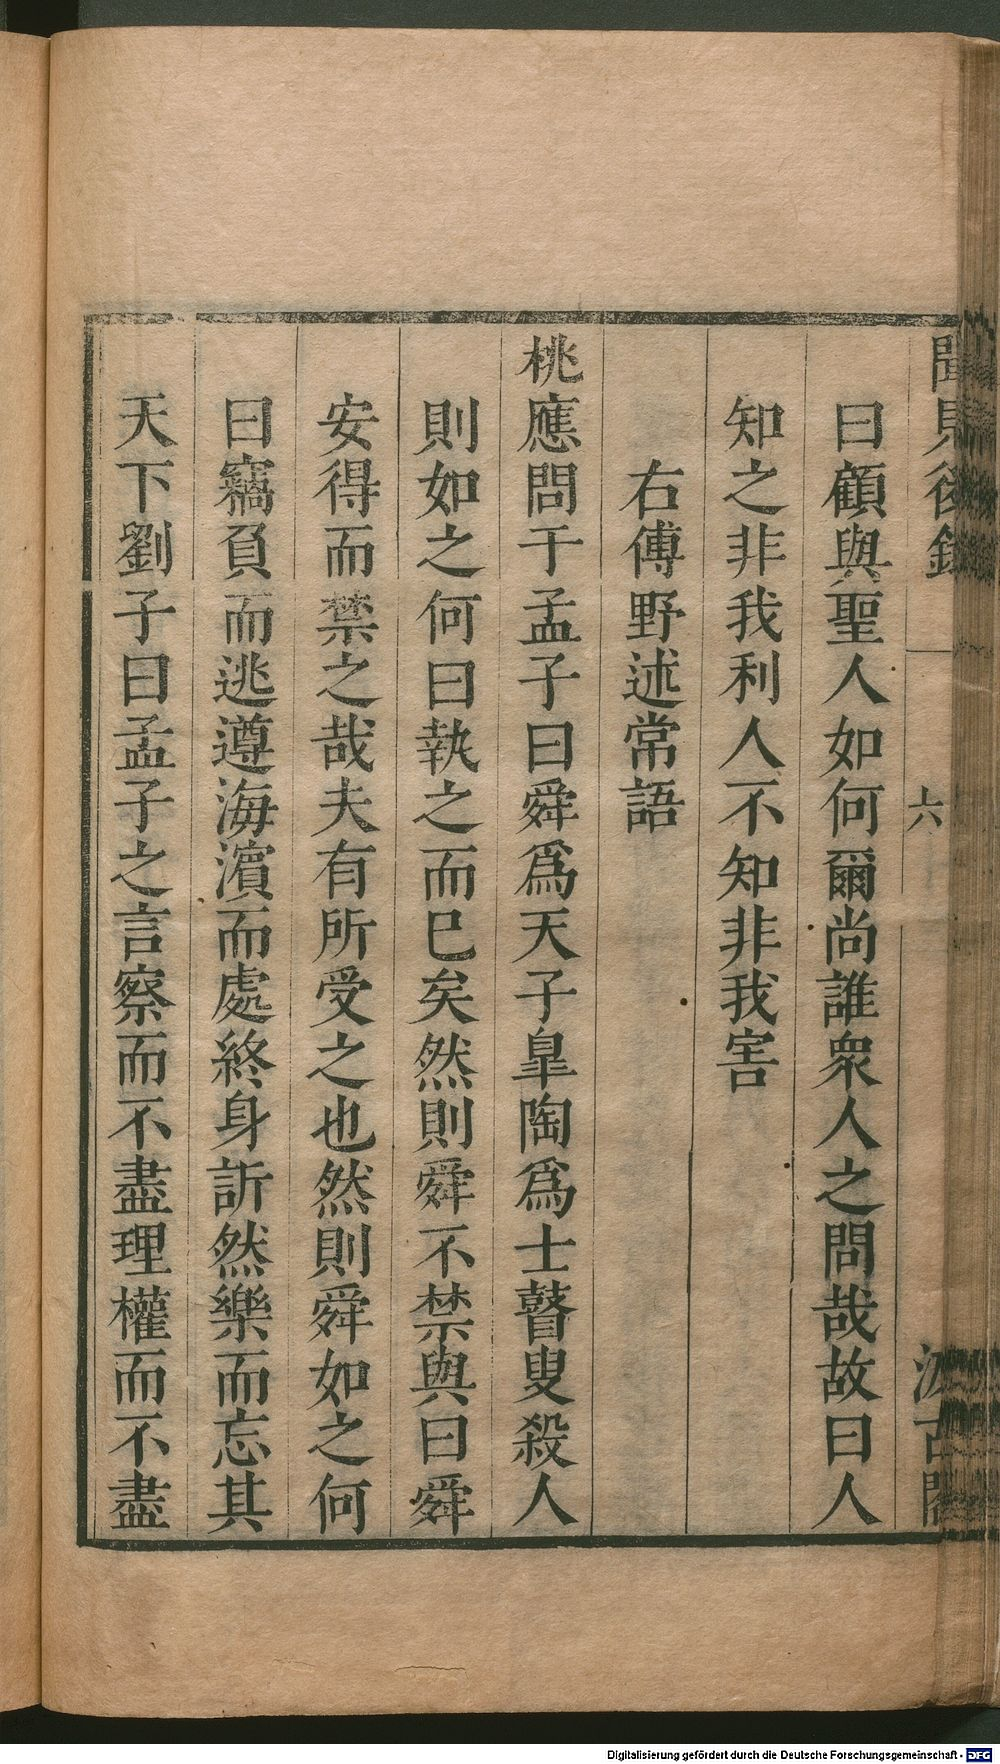 聞見後錄 六 汲古閣
曰顧與聖人如何爾尚誰衆人之問哉故曰人
知之非我利人不知非我害
右傅野述常語
桃應問于孟子曰舜爲天子皐陶爲士瞽叟殺人
則如之何曰執之而巳矣然則舜不禁與曰舜
安得而禁之哉夫有所受之也然則舜如之何
曰竊負而逃遵海濵而處終身訢然樂而忘其
天下劉子曰孟子之言察而不盡理權而不盡
Digitalisierung gefördert durch die Deutsche Forschungsgemeinschaft - DFG